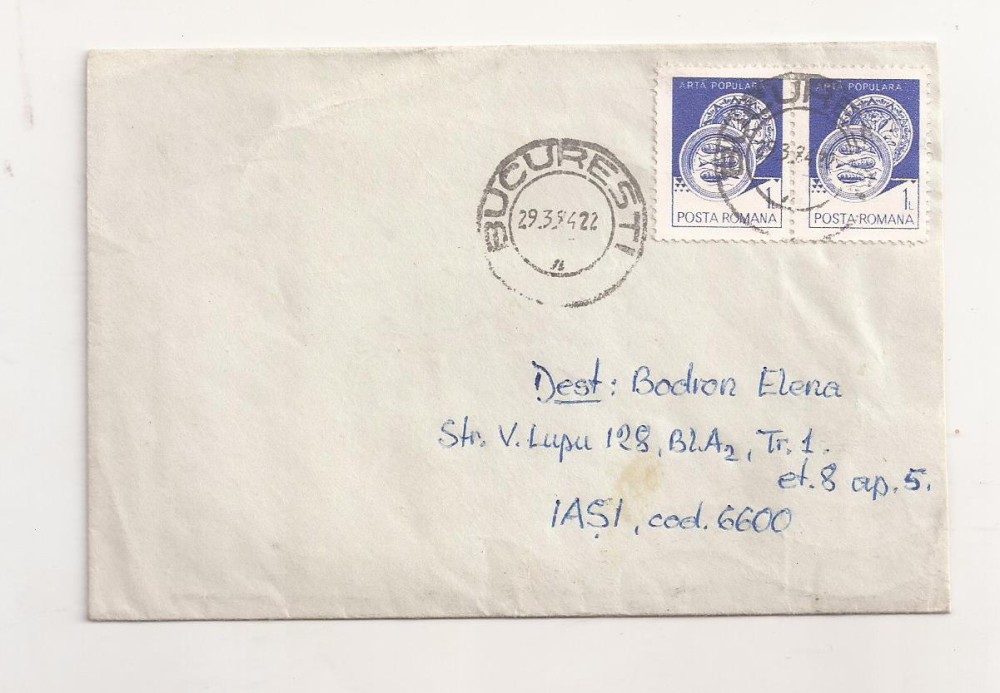 ARTĂ POPULARĂ
1L
POSTA ROMANA
ARTĂ POPULARA
1L
POSTA ROMANA
BUCURESTI
29.3.94.22
Dest: Bodron Elena
Str. V. Lupu 128, Bl.A2, Tr. 1.
et. 8 ap. 5.
IAȘI, cod. 6600